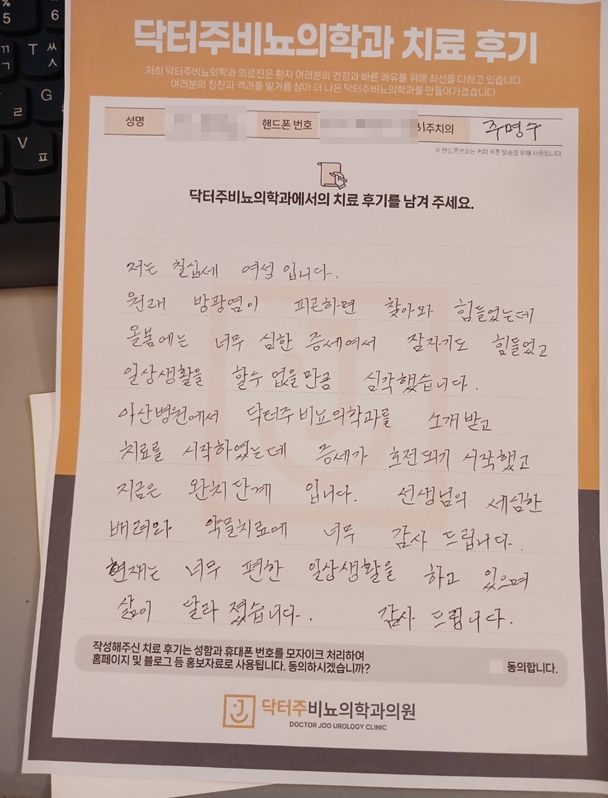 닥터주비뇨의학과 치료 후기
저희 닥터주비뇨의학과 의료진은 환자 여러분의 건강과 빠른 쾌유를 위해 최선을 다하고 있습니다.
여러분의 칭찬과 격려를 밑거름 삼아 더 나은 닥터주비뇨의학과를 만들어가겠습니다.
성명 핸드폰 번호 주치의 주명수
※ 핸드폰번호는 커피 쿠폰 발송을 위해 사용됩니다
닥터주비뇨의학과에서의 치료 후기를 남겨 주세요.
저는 칠십세 여성 입니다.
원래 방광염이 피곤하면 찾아와 힘들었는데
올봄에는 너무 심한 증세여서 잠자기도 힘들었고
일상생활을 할수 없을만큼 심각했습니다.
아산병원에서 닥터주비뇨의학과를 소개받고
치료를 시작하였는데 증세가 호전되기 시작했고
지금은 완치단계 입니다. 선생님의 세심한
배려와 약물치료에 너무 감사 드립니다.
현재는 너무 편한 일상생활을 하고 있으며
삶이 달라 졌습니다. 감사 드립니다.
작성해주신 치료 후기는 성함과 휴대폰 번호를 모자이크 처리하여
홈페이지 및 블로그 등 홍보자료로 사용됩니다. 동의하시겠습니까? 동의합니다.
닥터주비뇨의학과의원
DOCTOR JOO UROLOGY CLINIC